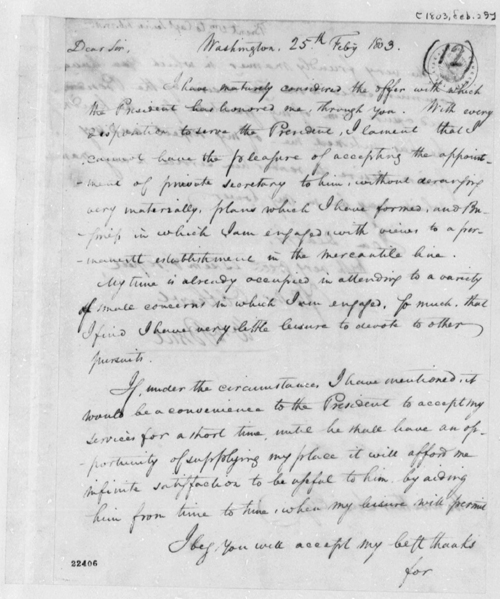 [1803, Feb. 25]
Dear Sir, Washington. 25th Feby 1803.
12
I have maturely considered the offer with which
the President has honored me, through you. With every
disposition to serve the President, I lament that I
cannot have the pleasure of accepting the appoint-
ment of private secretary to him, without deranging
very materially, plans which I have formed, and Bu-
siness in which I am engaged, with views to a per-
manent establishment in the mercantile line.
My time is already occupied in attending to a variety
of small concerns in which I am engaged, so much, that
I find I have very little leisure to devote to other
pursuits.
If, under the circumstances I have mentioned, it
would be a convenience to the President to accept my
services for a short time, until he shall have an op-
portunity of supplying my place it will afford me
infinite satisfaction to be useful to him, by aiding
him from time to time, when my leisure will permit
I beg you will accept my best thanks
for
22406